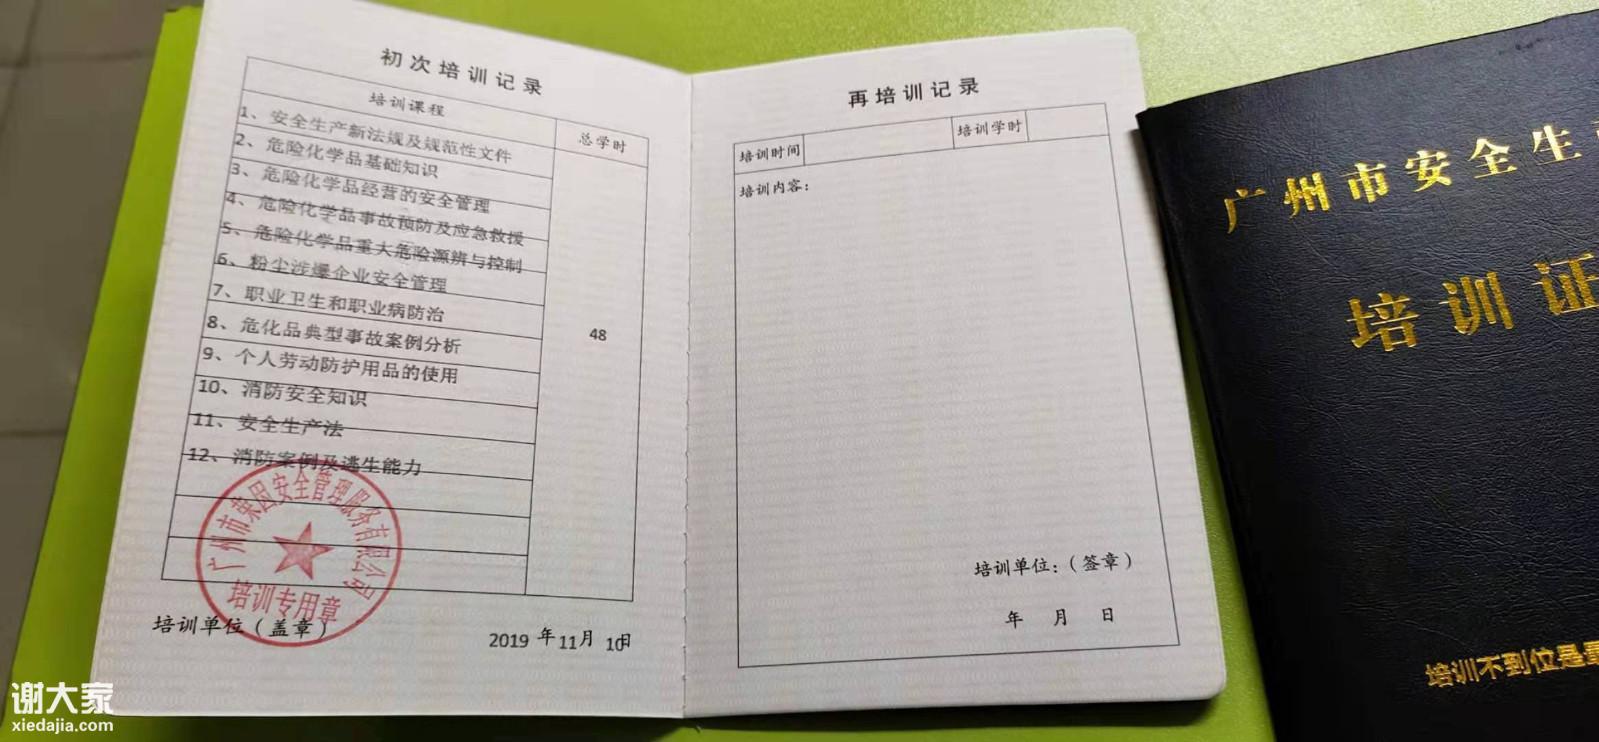 初次培训记录
培训课程
总学时
1、安全生产新法规及规范性文件
2、危险化学品基础知识
3、危险化学品经营的安全管理
4、危险化学品事故预防及应急救援
5、危险化学品重大危险源辨与控制
6、粉尘涉爆企业安全管理
7、职业卫生和职业病防治
8、危化品典型事故案例分析
9、个人劳动防护用品的使用
10、消防安全知识
11、安全生产法
12、消防案例及逃生能力
48
广州市荣因安全管理服务有限公司
培训专用章
培训单位（盖章）
2019 年 11月 10日
再培训记录
培训时间
培训学时
培训内容：
培训单位：（签章）
年 月 日
广州市安全生
培训证
培训不到位是
谢大家
xiedajia.com